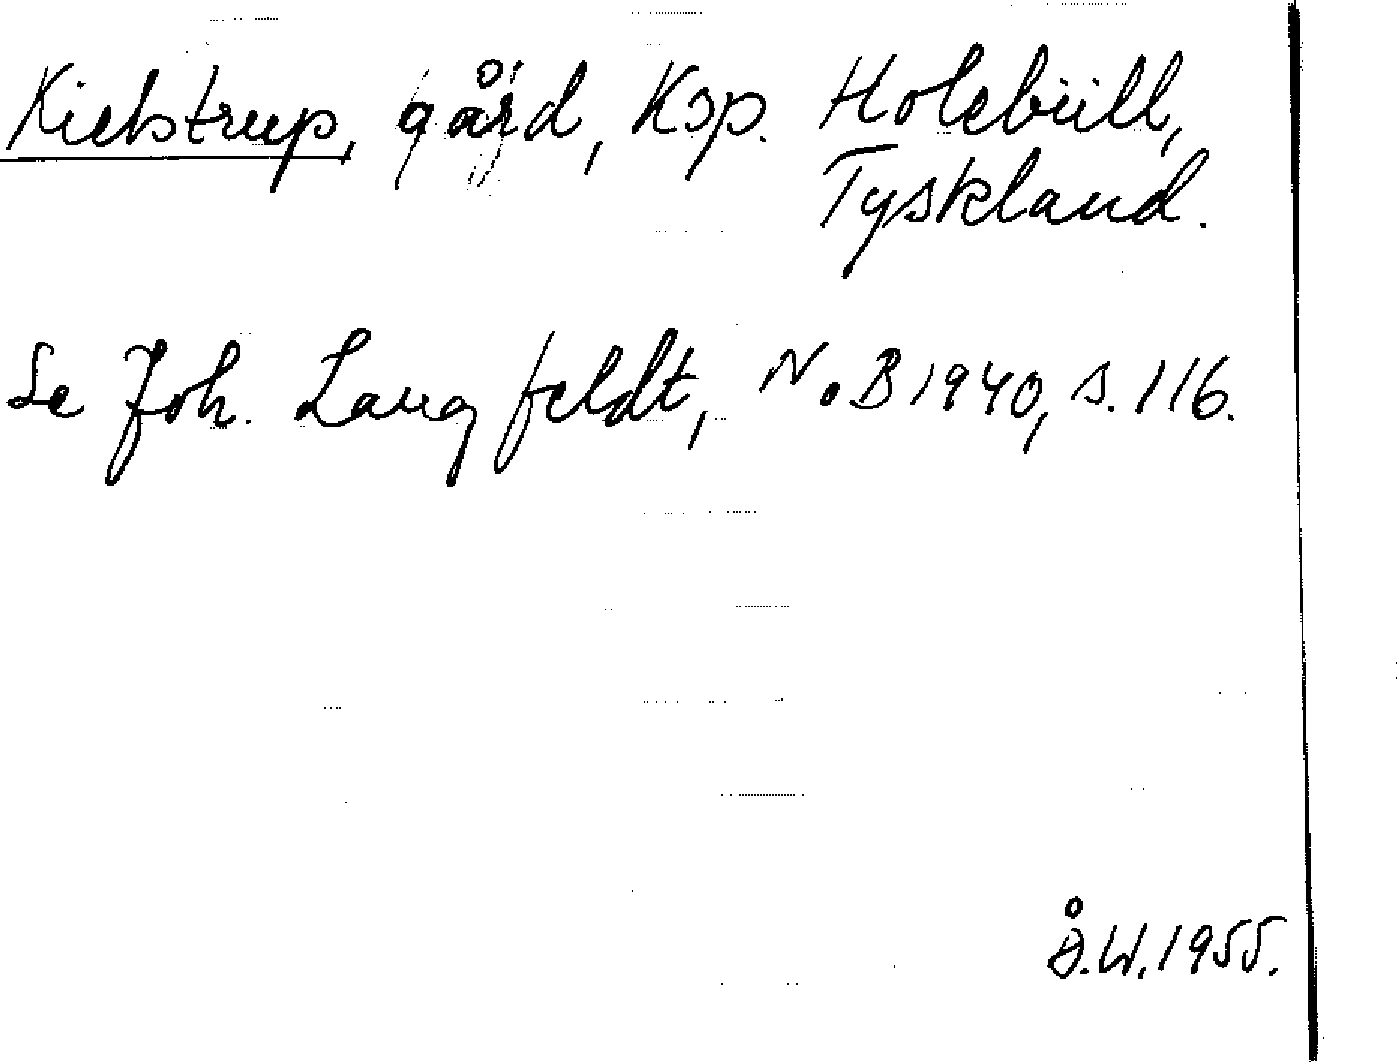 Kielstrup, gård, Ksp. Holebüll,
Tyskland.
Se Joh. Langfeldt, N.B 1940, s. 116.
Å.W. 1955.